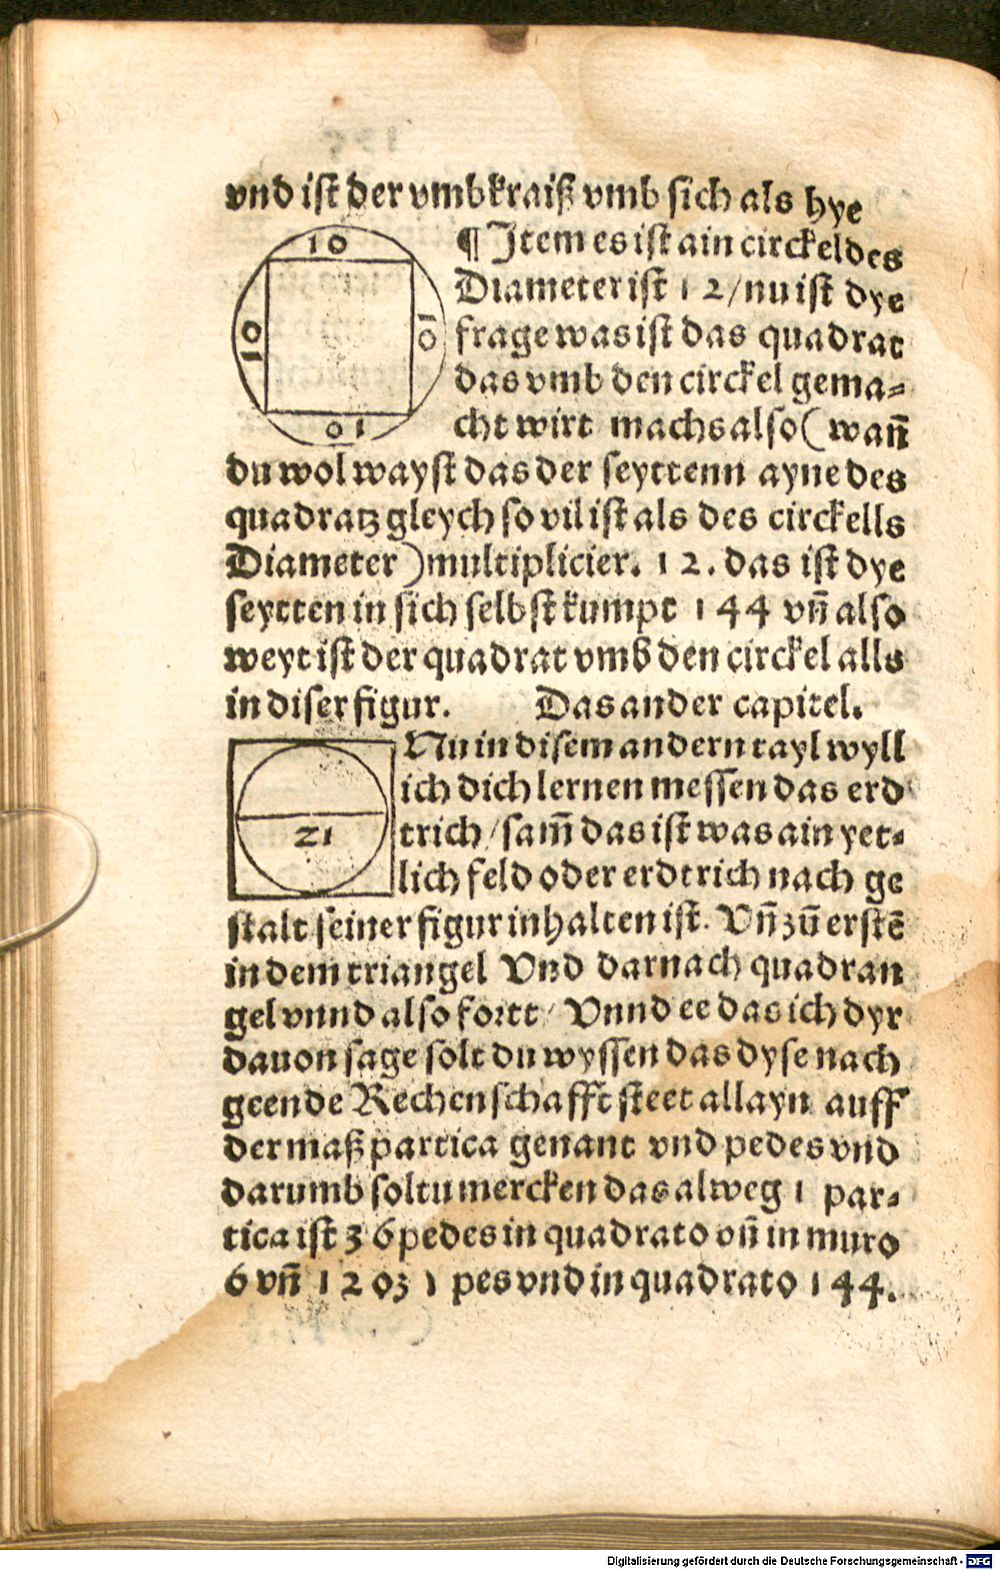 vnd ist der vmbkraiß vmb sich als hye
10
10
10
10
¶ Jtem es ist ain circkel des
Diameter ist 12/nu ist dye
frage was ist das quadrat
das vmb den circkel gema⸗
cht wirt machs also (wañ
du wol wayst das der seyttenn ayne des
quadratz gleych so vil ist als des circkells
Diameter) multiplicier. 12. das ist dye
seytten in sich selbst kumpt 144 vñ also
weyt ist der quadrat vmb den circkel alls
in diser figur. Das ander capitel.
21
Nu in disem andern tayl wyll
ich dich lernen messen das erd
trich/sam̃ das ist was ain yet⸗
lich feld oder erdtrich nach ge
stalt seiner figur inhalten ist. Vñ zů erstē
in dem triangel Vnd darnach quadran
gel vnnd also fortt/ Vnnd ee das ich dyr
dauon sage solt du wyssen das dyse nach
geende Rechenschafft steet allayn auff
der maß partica genant vnd pedes vnd
darumb soltu mercken das alweg 1 par⸗
tica ist 36 pedes in quadrato vñ in muro
6 vñ 12 oʒ 1 pes vnd in quadrato 144.
Digitalisierung gefördert durch die Deutsche Forschungsgemeinschaft - DFG